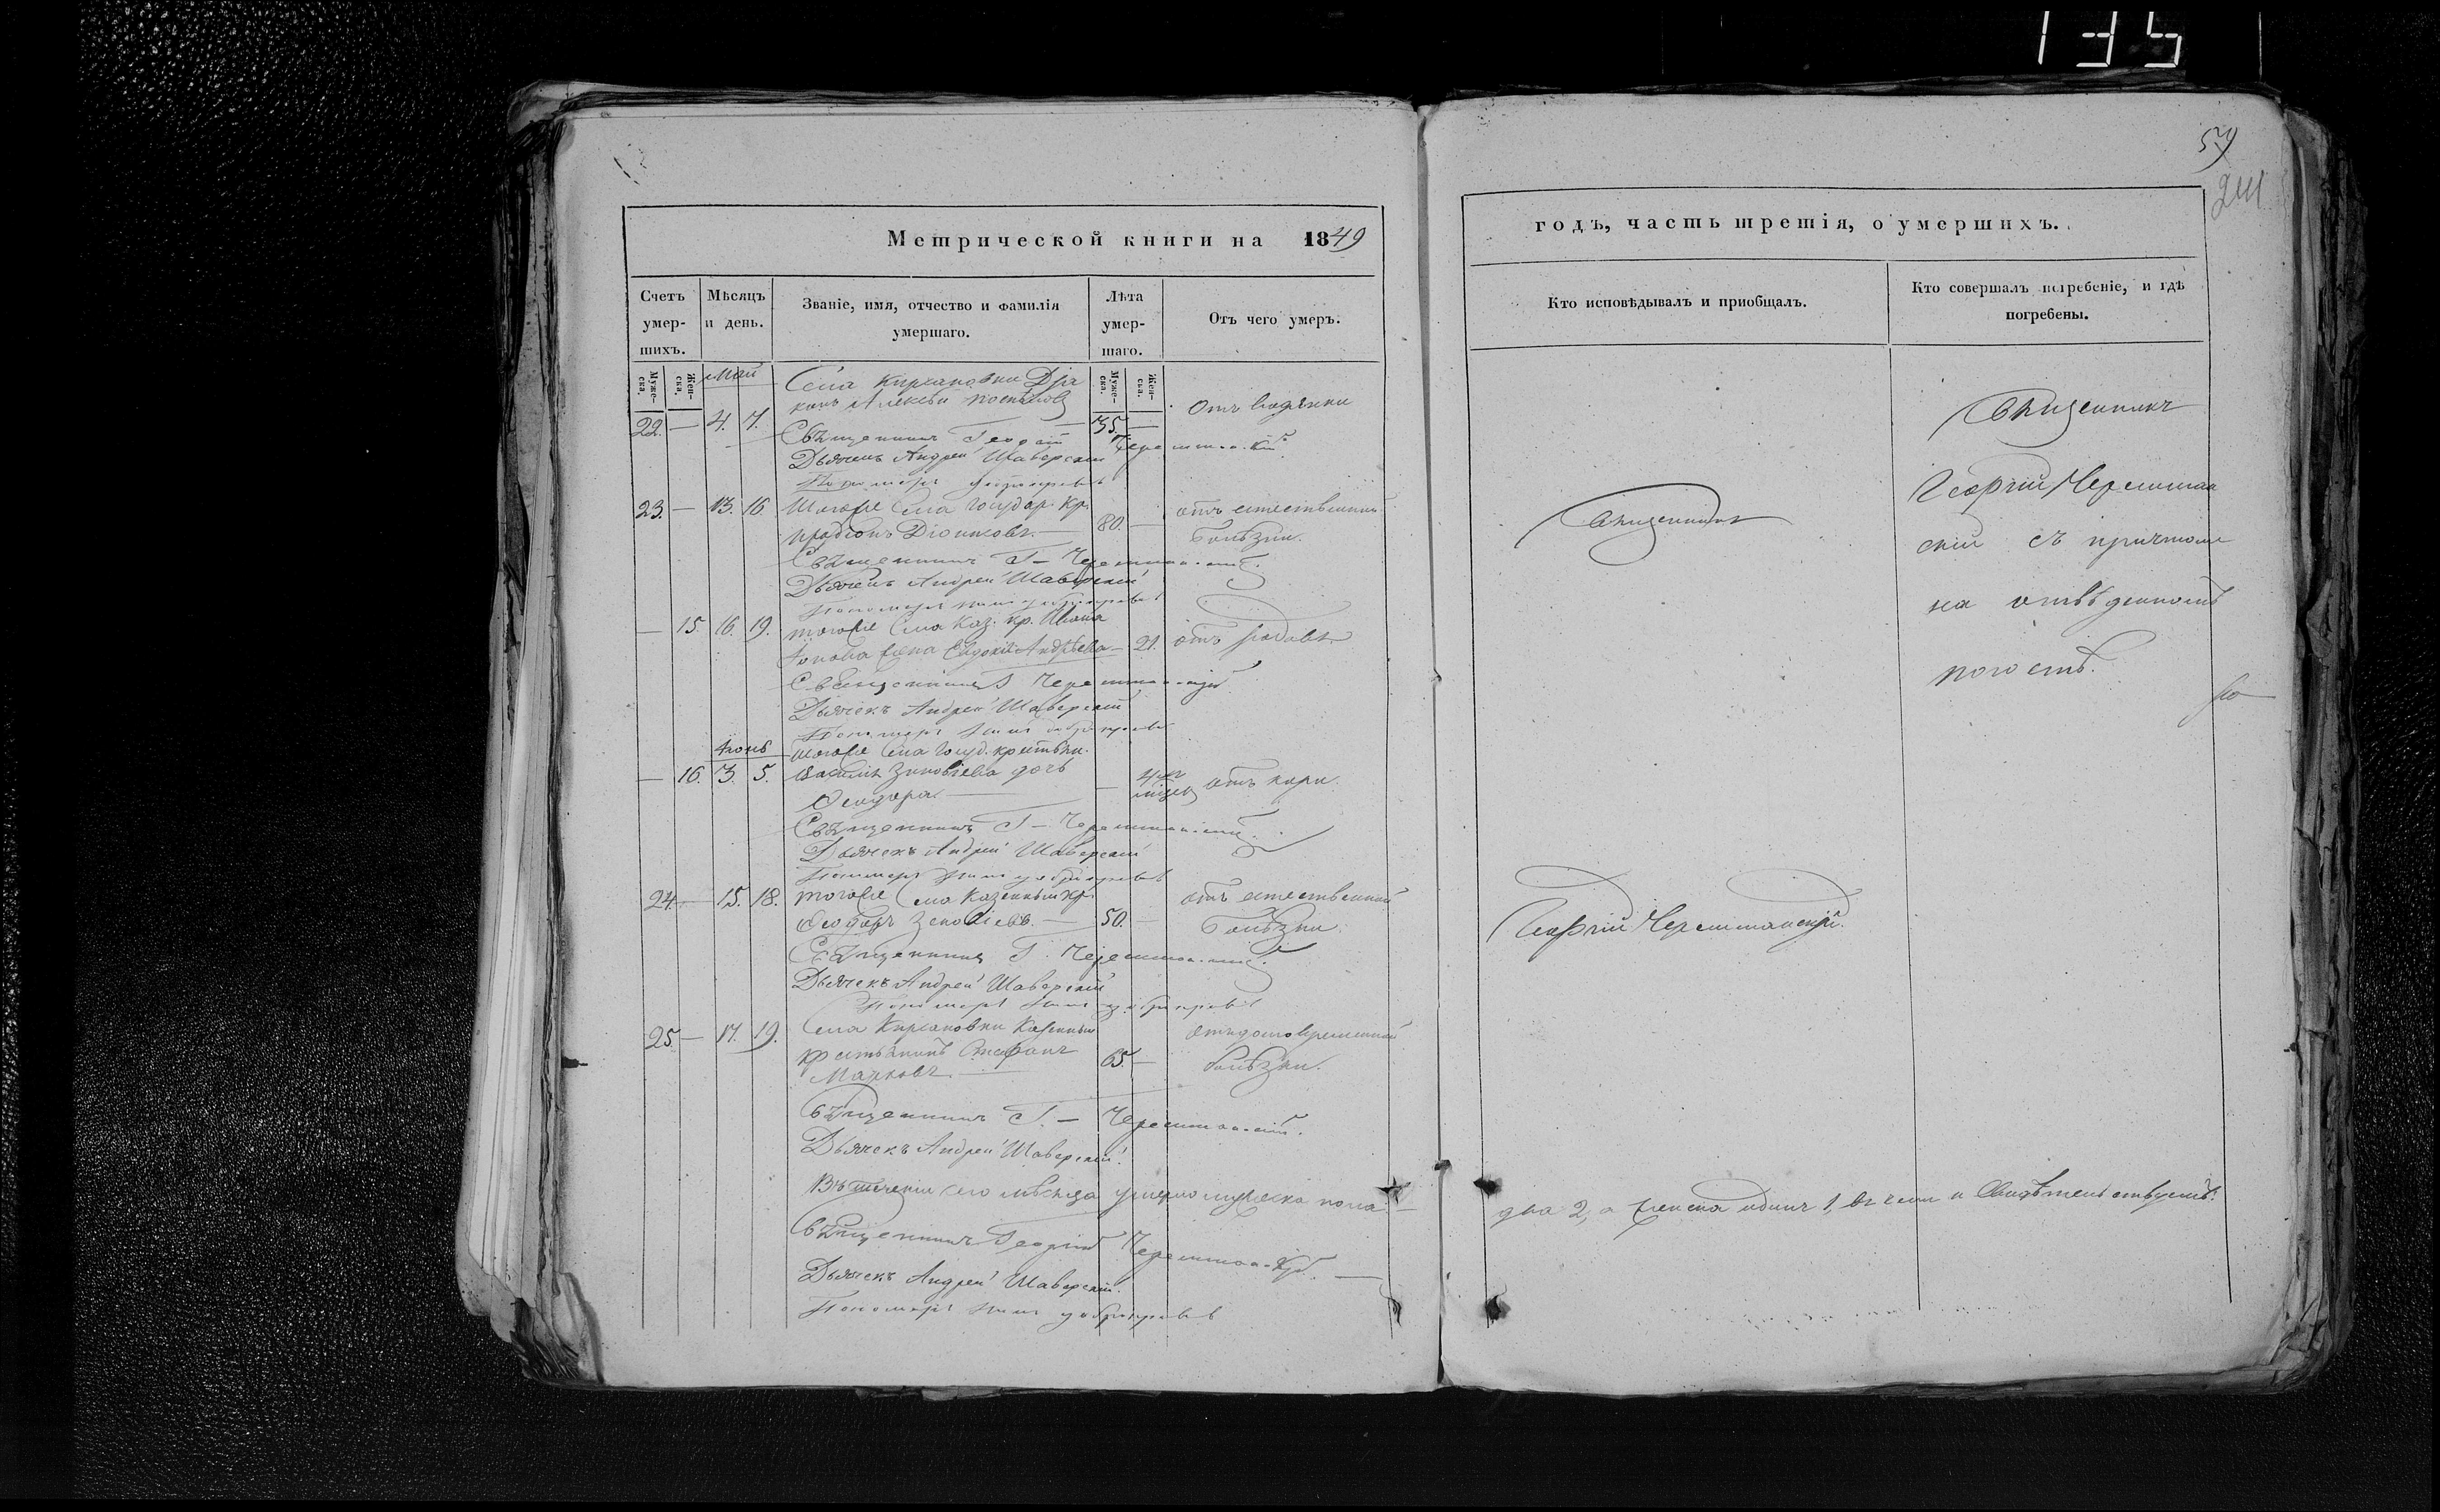 135
59
241
Метрической книги на 1849
годъ, часть третія, о умершихъ.
Счетъ умер-шихъ.
Мѣсяцъ и день.
Званіе, имя, отчество и фамилія умершаго.
Лѣта умер-шаго.
Отъ чего умеръ.
Кто исповѣдывалъ и приобщалъ.
Кто совершалъ погребеніе, и гдѣ погребены.
Муже-ска.
Жен-ска.
Муже-ска.
Жен-ска.
Май
Села Кирсановки Діа
конъ Алексѣй
22. — 4. 7. 35. — Отъ водянки
Священникъ Георгій Черемшанскій
Дьячекъ Андрей Шаверскій
Пономарь
23. — 13. 16. тогоже Села Государ. Кр.
80. — отъ естественной
болѣзни.
Священникъ Г — Черемшанскій
Дьячекъ Андрей Шаверскій
Пономарь
— 15. 16. 19. тогоже Села Каз. кр. Ивана
жена Евдокія Андрѣева — 21. отъ родовъ
Священникъ Г Черемшанскій
Дьячекъ Андрей Шаверскій
Пономарь
Іюнь
тогоже Села Госуд. крестьян.
— 16. 3. 5. Василія Зиновіева дочь
Ѳеодора — отъ кори
Священникъ Г — Черемшанскій
Дьячекъ Андрей Шаверскій
Пономарь
24. — 15. 18. тогоже Села Казенный кр.
Ѳеодоръ Зеновіевъ. — 50. — отъ естественной
болѣзни
Священникъ Г. Черемшанскій
Дьячекъ Андрей Шаверскій
Пономарь
25. — 17. 19. Села Кирсановки Казенный
крестьянинъ Стефанъ
Марковъ. — 65. — отъ долговременной
болѣзни.
Священникъ Г. — Черемшанскій.
Дьячекъ Андрей Шаверскій.
Въ теченіи сего мѣсяца умерло мужеска пола
Священникъ Георгій Черемшанскій. —
Дьячекъ Андрей Шаверскій.
Пономарь
Священникъ
Георгій Черемшанскій.
Священникъ
Георгій Черемшан
скій съ причтомъ
на отвѣденномъ
погостѣ.
два 2, а женска одинъ 1, въ чемъ и свидѣтельствуемъ.